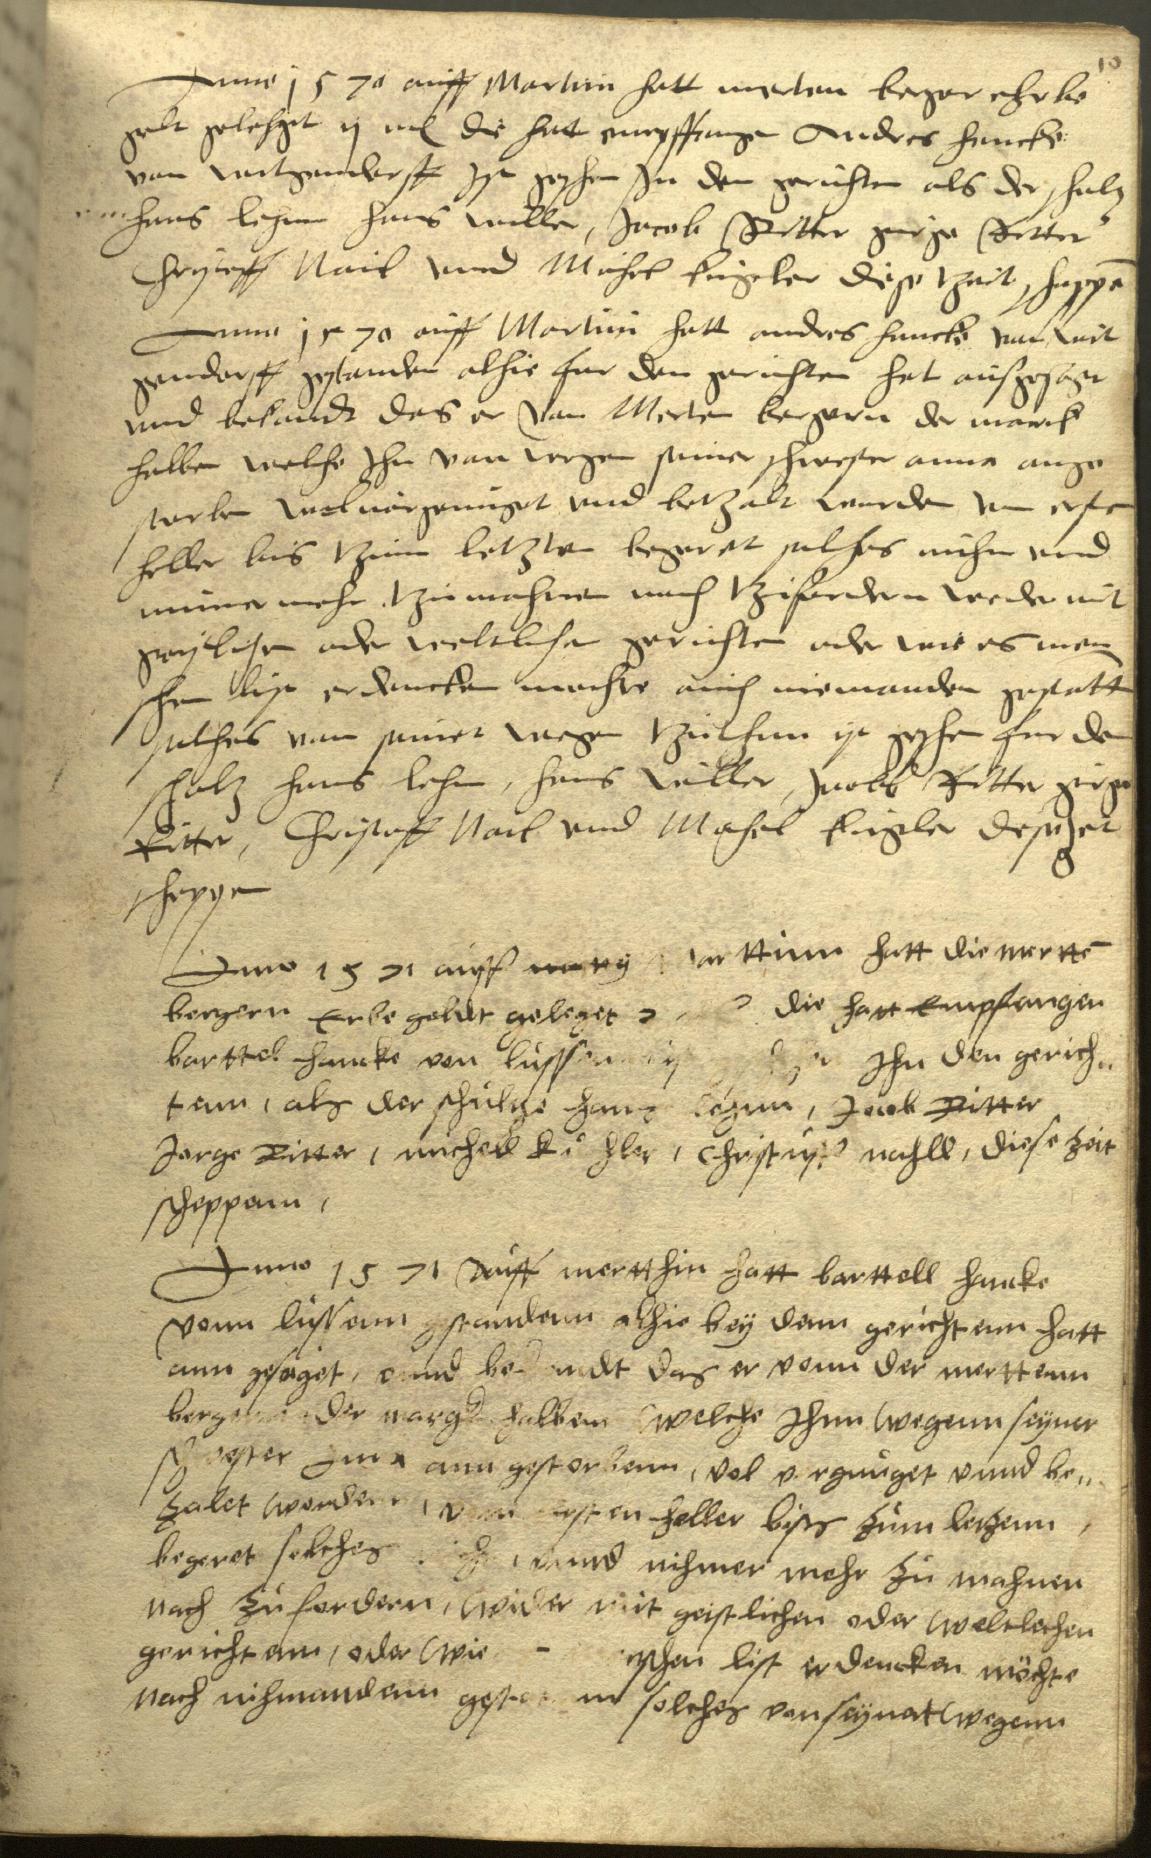 10
Anno 1570 auff Martini hatt merten berger ehrbe
gelt gelehget ij mk die hatt emmpffangen Andres hancke
von weitgenderff Jst geschen Jn den gerichten als der scholz
hans lehm hans willer, Jacob Ritter girge Ritter
Christoff Nail vnnd Michel kigeler diese tzeit scheppen
Anno 1570 auff Martini hatt andres hancke van weit
genderff gestanden alhie fur den gerichten hat ausgesaget
vnnd bekandt das er van Merten bergern der marck
halben welche Jhn von wegen seiner schwester anna ange
storben wol vorgenuget vnd betzalt worden vom ersten
heller bis tzum letzten begeret solches nicht vnnd
nimer mehr tzu mahnen noch tzu fordern weder mit
geystlichen oder weltlichen gerichten oder wie es men
schen list erdencken mochte auch niemanden gestatten
solches von seinet wegen tzu thun ist geschen fur den
scholz hans lehm, hans willer, Jacob Ritter girge
Ritter, Christoff Nail vnnd Michel kigeler diese zeit
scheppen
Anno 1571 auff marttinn hatt die merttē
bergern Erbe geldt geleget die hatt Empfangen
barttel hancke von lusssen Jhn den gerich„
tenn, als der schultze hans lehmn, Jocob Ritter
Jorge Ritter, michell kighler, Christuff nahll, diese Zeit
scheppenn,
Anno 1571 auff mertthin hatt barttell hancke
vonn lussenn gestandenn alhie bey denn gerichtenn hatt
ann gesaget, vnnd bekandt das er vonn der merttenn
bergern der margk halben welche Jhnn wegenn seyner
schwester Anna ann gestorbenn, vol vergnuget vnnd be„
zalet worden, vom ersten heller bisz zum letzenn,
begeret solches nicht, vnnd nihmer mehr zu mahnen
nach zu fordern, wider mit geistlichen oder weltlechen
gerichtenn, oder wie schen list erdencken möchte
nach nihmandenn gestatenn solches von seynat wegenn